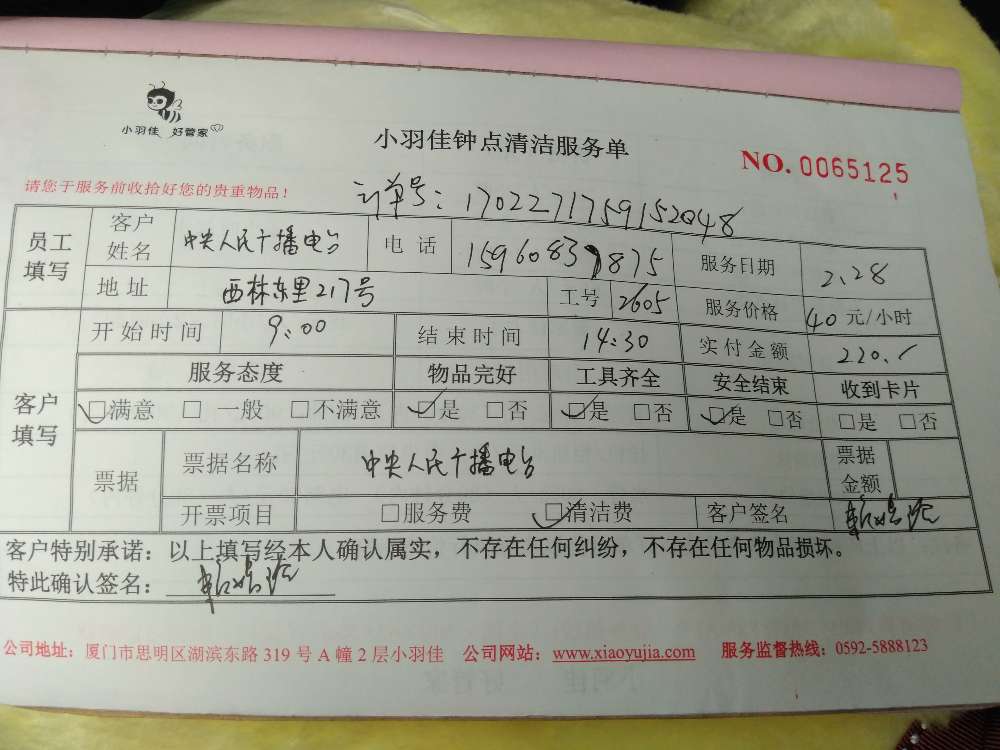 小羽佳 好管家
小羽佳钟点清洁服务单
NO. 0065125
请您于服务前收拾好您的贵重物品！
订单号：1702271759152048
员工填写 客户姓名 中央人民广播电台 电话 15960839875 服务日期 2.28
地址 西林东里217号 工号 2605 服务价格 40元/小时
客户填写 开始时间 9:00 结束时间 14:30 实付金额 220.
服务态度 物品完好 工具齐全 安全结束 收到卡片
☑满意 □一般 □不满意 ☑是 □否 ☑是 □否 ☑是 □否 □是 □否
票据 票据名称 中央人民广播电台 票据金额
开票项目 □服务费 ☑清洁费 客户签名
客户特别承诺：以上填写经本人确认属实，不存在任何纠纷，不存在任何物品损坏。
特此确认签名：
公司地址：厦门市思明区湖滨东路 319 号 A 幢 2 层小羽佳 公司网站：www.xiaoyujia.com 服务监督热线：0592-5888123